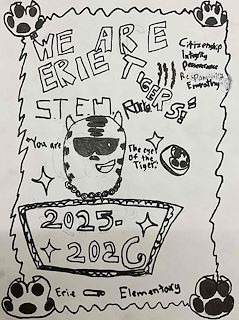 WE ARE
ERIE TIGERS!
STEM
Citizenship
Integrity
Perseverance
Responsibility
Empathy
You are
The eye
of the
Tiger.
2025-
2026
Erie Elementary